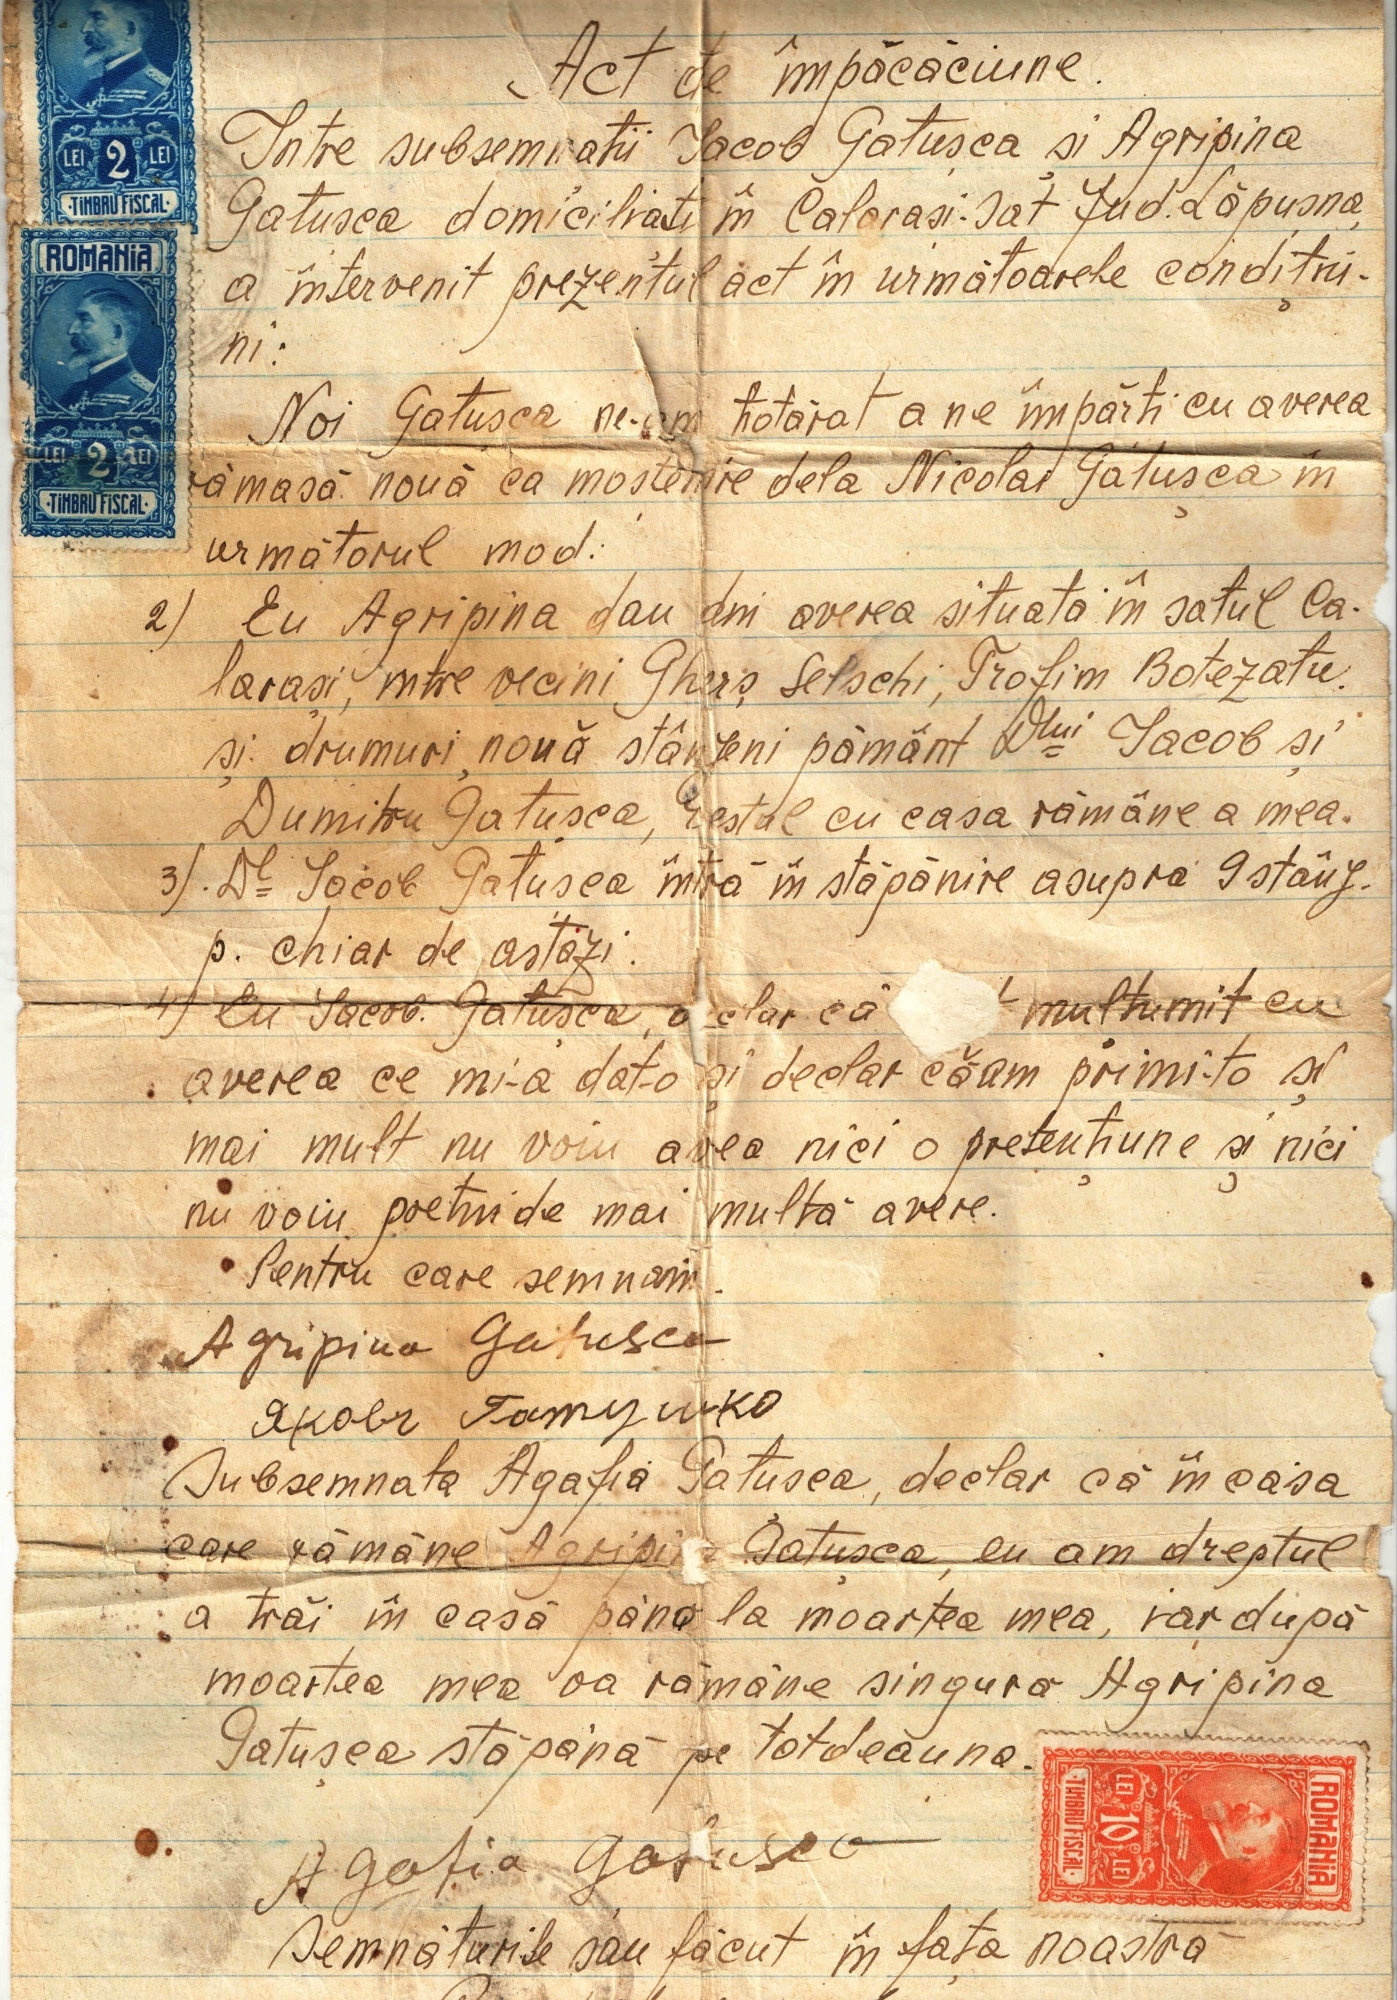 Act de împăcăciune.
Intre subsemnatii Iacob Gatușca și Agripina
Gatusca domiciliati în Calarasi-Sat Jud. Lăpușna,
a intervenit prezentul act în următoarele condițiu-
ni:
Noi Gatușca ne-am hotărat a ne împărți cu averea
rămasă nouă ca moștenire dela Nicolai Gatușca în
următorul mod:
2) Eu Agripina dau din averea situata în satul Ca-
larași, intre vecini Gherș Selschi, Trofim Botezatu
și drumuri, nouă stânjeni pământ Dlui Iacob și
Dumitru Gatușca, restul cu casa rămâne a mea.
3). Dl Iacob Gatușca intră în stăpânire asupra 9 stânj.
p. chiar de astăzi.
4) Eu Iacob Gatușca, declar că multumit cu
averea ce mi-a dat-o și declar că am primi-to și
mai mult nu voiu avea nici o pretențiune și nici
nu voiu pretinde mai multă avere.
Pentru care semnăm.
Agripina Gatusca
Яковъ Гатушко
Subsemnata Agafia Gatușca, declar că în casa
care rămâne Agripina Gatușca, eu am dreptul
a trăi în casă pănă la moartea mea, iar după
moartea mea va rămâne singura Agripina
Gatușca stăpână pe totdeauna.
Agafia Gatusca
Semnăturile sau făcut în fața noastră
LEI 2 LEI
TIMBRU FISCAL
ROMANIA
LEI 2 LEI
TIMBRU FISCAL
ROMANIA
LEI 10 LEI
TIMBRU FISCAL